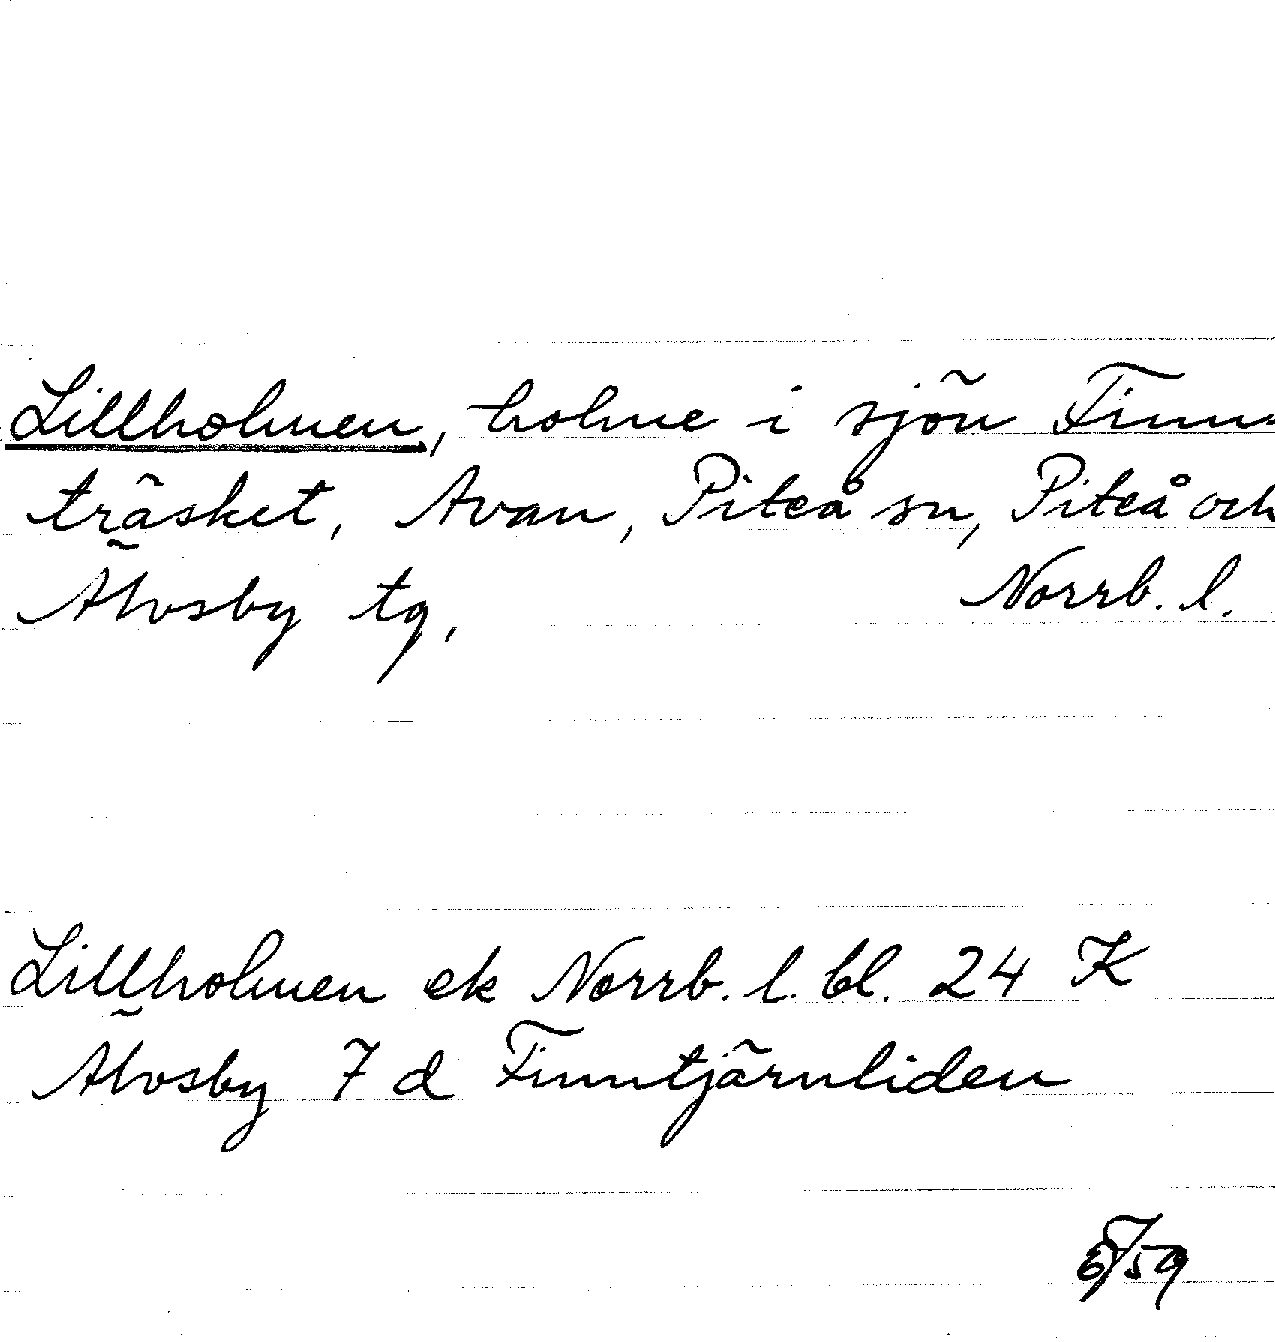 Lillholmen, holme i sjön Finn-
träsket, Avan, Piteå sn, Piteå och
Älvsby tg, Norrb. l.
Lillholmen ek Norrb. l. bl. 24 K
Älvsby 7 d Finntjärnliden